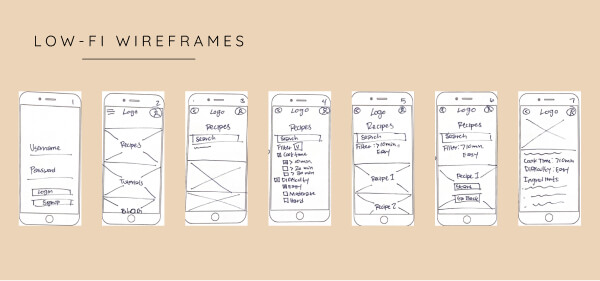 LOW-FI WIREFRAMES
1
Username
Password
Login
Signup
2
Logo
Recipes
Tutorials
BLOG
3
Logo
Recipes
Search
4
Logo
Recipes
Search
Filter
Cook time
> 10 min
> 20 min
> 30 min
Difficulty
Easy
Moderate
Hard
5
Logo
Recipes
Search
Filter: >10min,
Easy
Recipe 1
Recipe 2
6
Logo
Recipes
Search
Filter: >10min,
Easy
Recipe 1
Go Back
7
Logo
Cook Time: >10min
Difficulty: Easy
Ingredients: